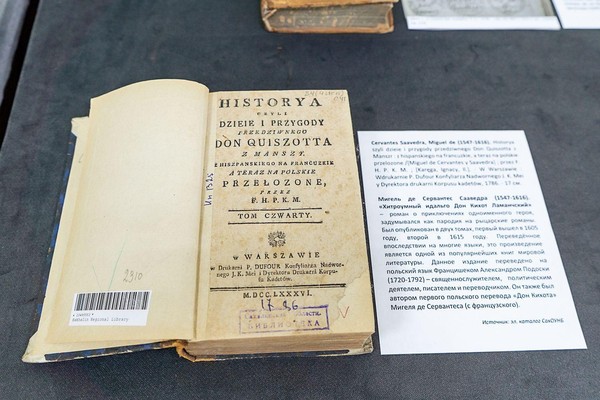 HISTORYA
CZYLI
DZIEIE I PRZYGODY
PRZEDZIWNEGO
DON QUISZOTTA
Z MANSZY.
Z HISZPANSKIEGO NA FRANCUZKIE
A TERAZ NA POLSKIE
PRZEŁOZONE,
PRZEZ
F. H. P. K. M.
TOM CZWARTY.
w WARSZAWIE
w Drukarni P. DUFOUR Konsyliarza Nadwor-
nego J. K. Mci i Dyrektora Drukarni Korpu-
su Kadetów.
M.DCC.LXXXVI.
БИБЛИОТЕКА
2310
Sakhalin Regional Library
Cervantes Saavedra, Miguel de (1547-1616). Historya
czyli dzieie i przygody przedziwnego Don Quiszotta z
Manszy : z hiszpanskiego na francuzkie, a teraz na polskie
przełozone /[Miguel de Cervantes y Saavedra] ; przez F.
H. P. K. M. ; [Karęga, Ignacy. Il.]. - W Warszawie :
Wdrukarnie P. Dufour Konfyliarza Nadwornego i. K. Me
y Dyrektora drukarni Korpusu kadetow, 1786. - 17 см.
Мигель де Сервантес Сааведра (1547-1616).
«Хитроумный идальго Дон Кихот Ламанчский»
– роман о приключениях одноименного героя,
задумывался как пародия на рыцарские романы.
Был опубликован в двух томах, первый вышел в 1605
году, второй в 1615 году. Переведённое
впоследствии на многие языки, это произведение
является одной из популярнейших книг мировой
литературы. Данное издание переведено на
польский язык Францишеком Александром Подоски
(1720-1792) – священнослужителем, политическим
деятелем, писателем и переводчиком. Он также был
автором первого польского перевода «Дон Кихота»
Мигеля де Сервантеса (с французского).
Источник: эл. каталог СахОУНБ